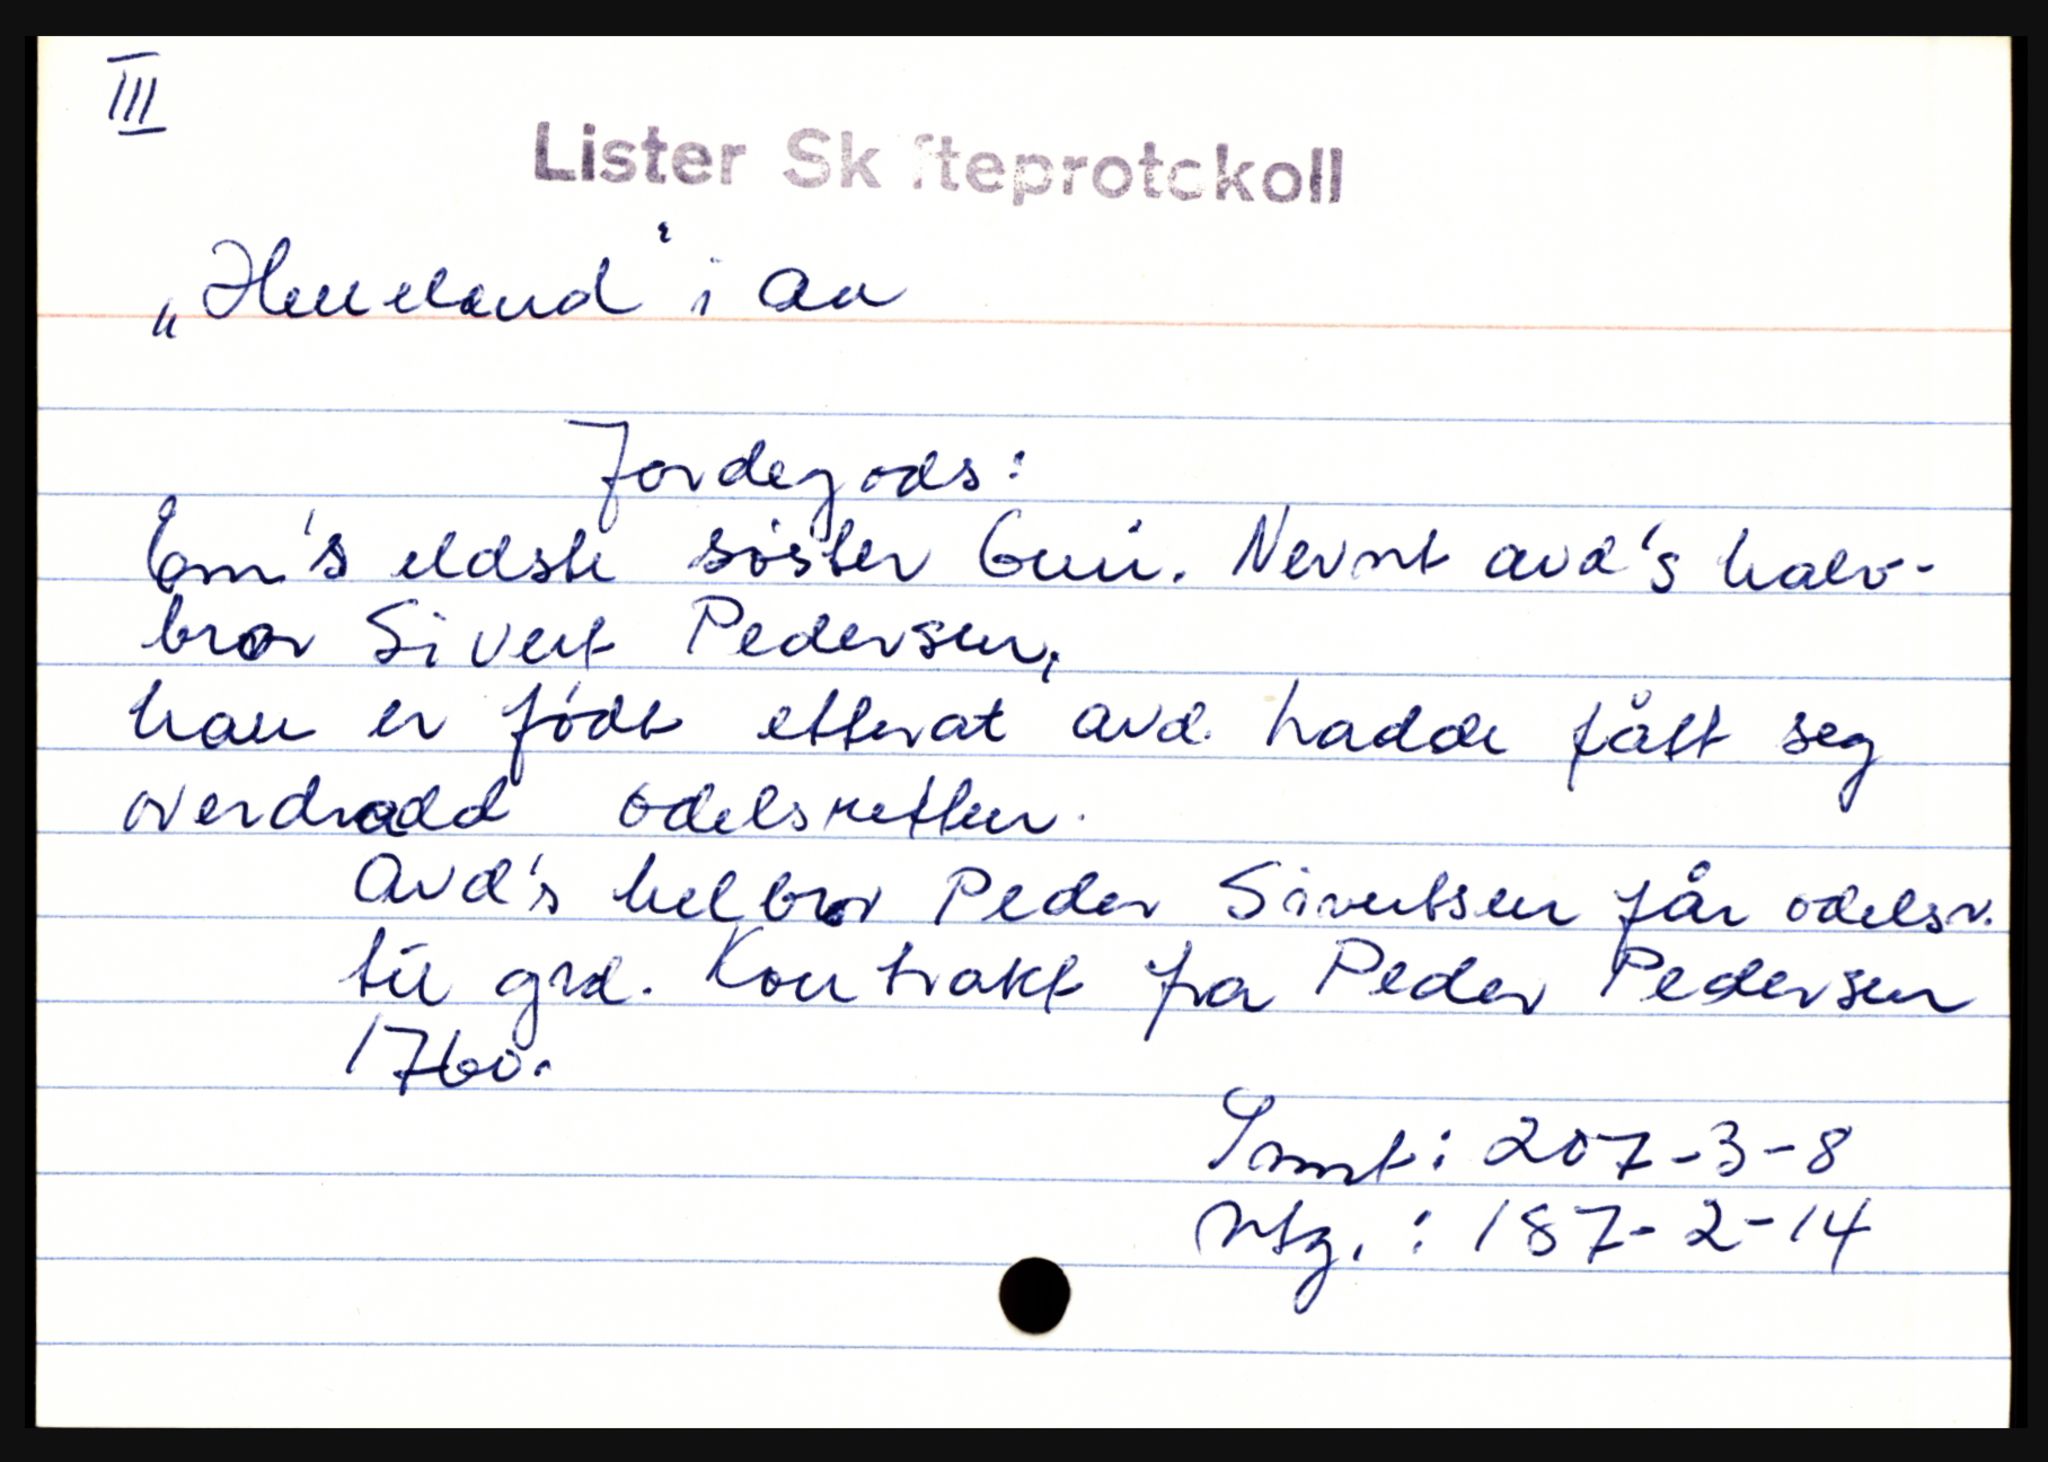 III
Lister Skifteprotokoll
„Helleland" i Aa
Jordegods:
Em's eldste søster Guri. Nevnt avd's halv-
bror Sivert Pedersen,
han er født etterat avd. hadde fått seg
overdradd odelsretten.
Avd's helbror Peder Sivertsen får odelsr.
til grd. Kontrakt fra Peder Pedersen
1760.
Smt: 207-3-8
: 187-2-14